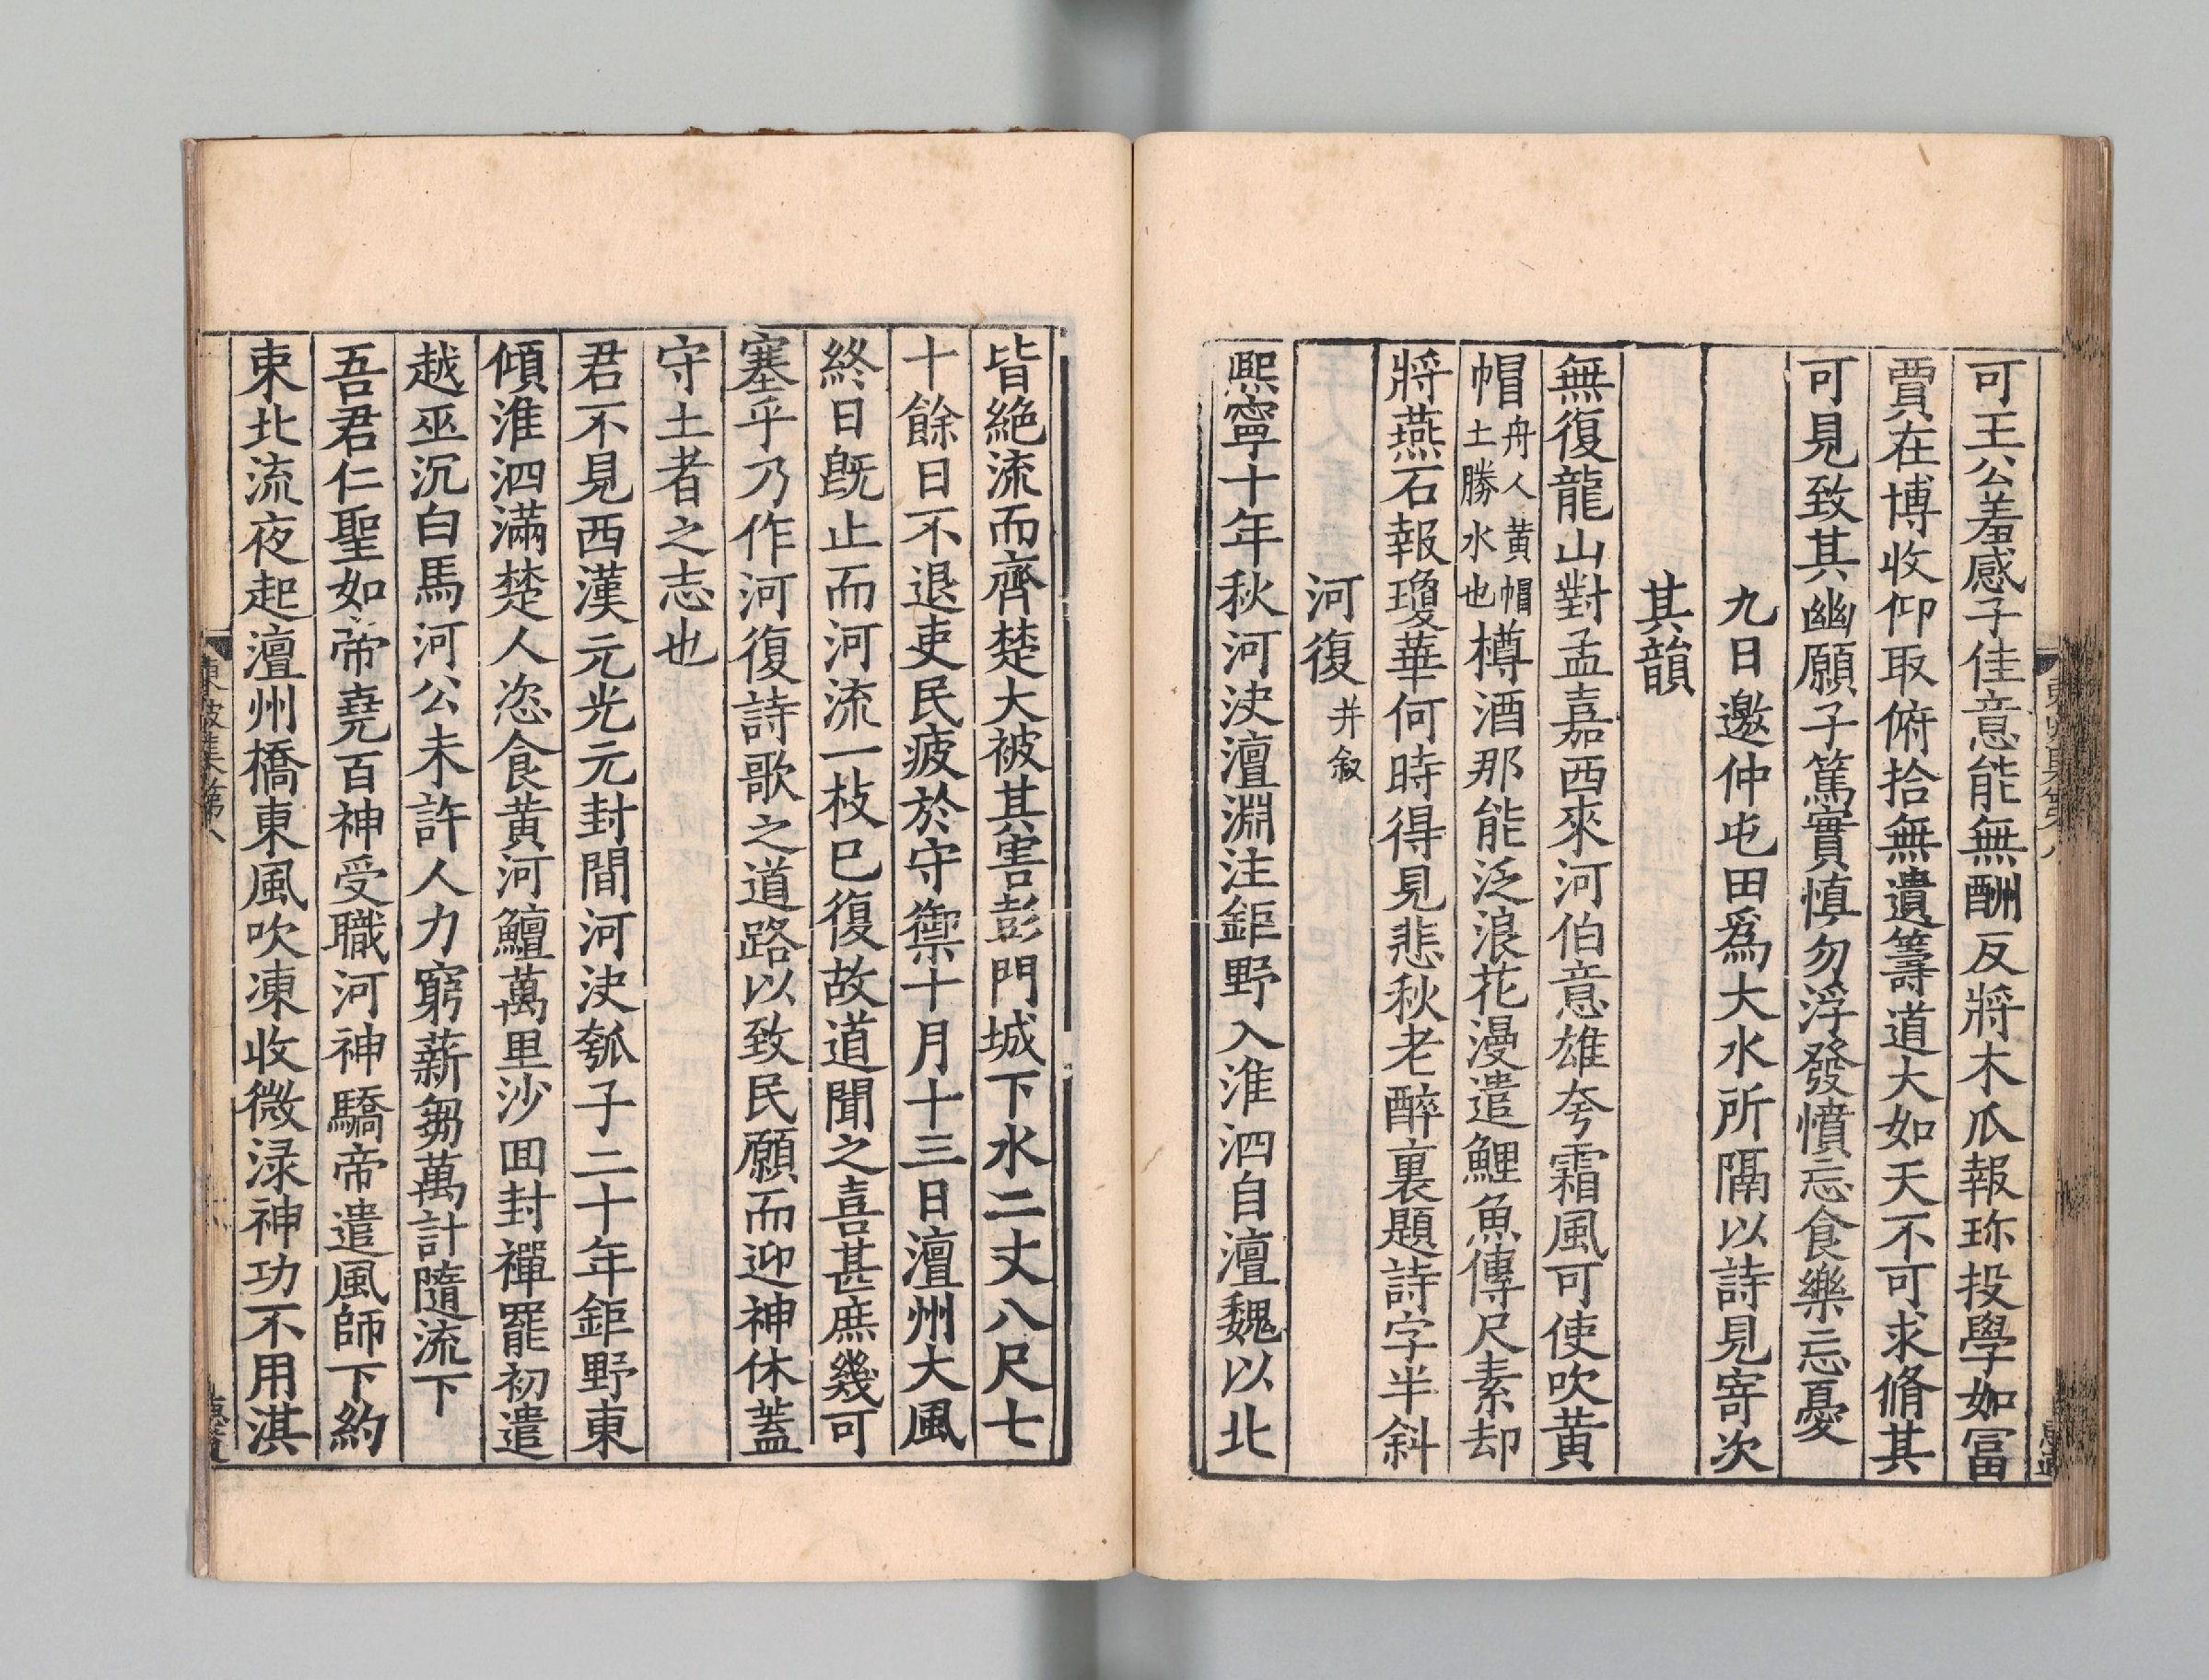 可王公羞感子佳意能無酬反將木瓜報珎投學如冨
賈在博收仰取俯拾無遺籌道大如天不可求脩其
可見致其幽願子篤實慎勿浮發憤忘食樂忘憂
九日邀仲屯田爲大水所隔以詩見寄次
其韻
無復龍山對孟嘉西來河伯意雄夸霜風可使吹黄
帽舟人黄帽土勝水也樽酒那能泛浪花漫遣鯉魚傳尺素却
將燕石報瓊華何時得見悲秋老醉裏題詩字半斜
河復并叙
熙寧十年秋河決澶淵注鉅野入淮泗自澶魏以北
皆絶流而齊楚大被其害彭門城下水二丈八尺七
十餘日不退吏民疲於守禦十月十三日澶州大風
終日旣止而河流一枝已復故道聞之喜甚庶幾可
塞乎乃作河復詩歌之道路以致民願而迎神休蓋
守土者之志也
君不見西漢元光元封間河決瓠子二十年鉅野東
傾淮泗滿楚人恣食黄河鱣萬里沙囬封禪罷初遣
越巫沉白馬河公未許人力窮薪芻萬計隨流下
吾君仁聖如帝堯百神受職河神驕帝遣風師下約
束北流夜起澶州橋東風吹凍收微渌神功不用淇
東坡集第八